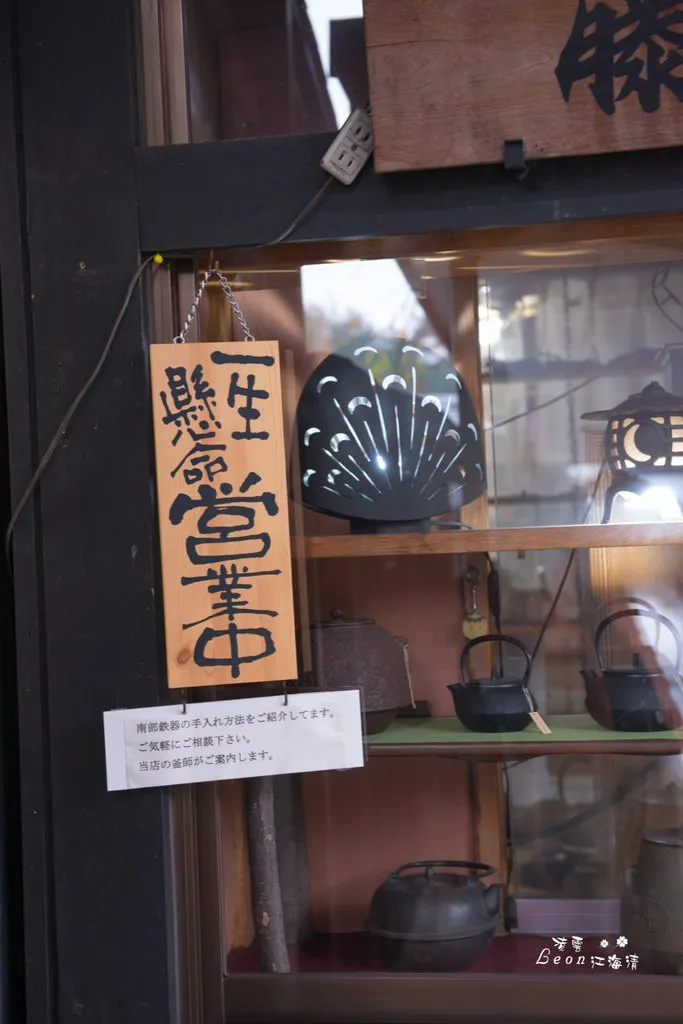 藤
一生
懸命
営業中
南部鉄器の手入れ方法をご紹介してます。
ご気軽にご相談下さい。
当店の釜師がご案内します。
凌雲
Leon江海清